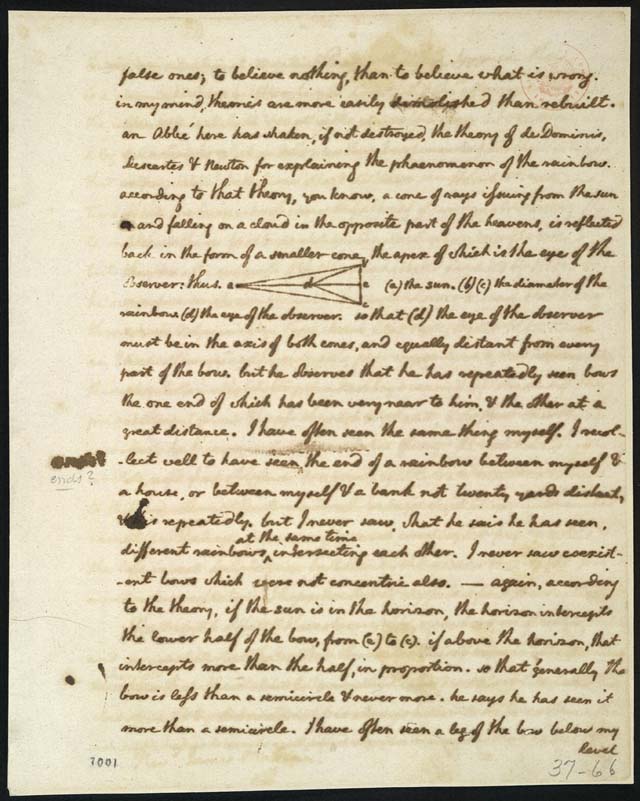 false ones; to believe nothing, than to believe what is wrong.
in my mind, theories are more easily demolished than rebuilt.
an Abbé here has shaken, if not destroyed, the theory of de Dominis,
Descartes & Newton for explaining the phaenomenon of the rainbow.
according to that theory, you know, a cone of rays issuing from the sun
and falling on a cloud in the opposite part of the heavens, is reflected
back in the form of a smaller cone, the apex of which is the eye of the
observer: thus. a d b e c (a) the sun. (b)(c) the diameter of the
rainbow. (d) the eye of the observer. so that (d) the eye of the observer
must be in the axis of both cones, and equally distant from every
part of the bow. but he observes that he has repeatedly seen bows
the one end of which has been very near to him, & the other at a
great distance. I have often seen the same thing myself. I recol-
-lect well to have seen the end of a rainbow between myself &
ends?
a house, or between myself & a bank not twenty yards distant,
& this repeatedly. but I never saw, what he sais he has seen,
at the same time
different rainbows, intersecting each other. I never saw coexist-
-ent bows which were not concentric also. — again, according
to the theory, if the sun is in the horizon, the horizon intercepts
the lower half of the bow, from (e) to (c). if above the horizon, that
intercepts more than the half, in proportion. so that generally the
bow is less than a semicircle & never more. he says he has seen it
more than a semicircle. I have often seen a leg of the bow below my
level
1001
37-66